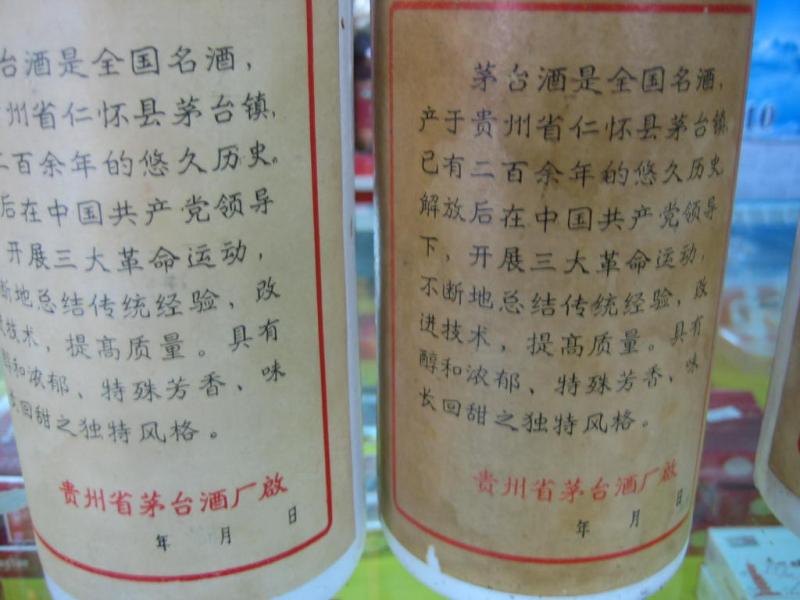 台酒是全国名酒，
州省仁怀县茅台镇，
二百余年的悠久历史。
后在中国共产党领导
开展三大革命运动，
断地总结传统经验、改
技术，提高质量。具有
和浓郁、特殊芳香、味
长回甜之独特风格。
贵州省茅台酒厂啟
年 月 日
茅台酒是全国名酒，
产于贵州省仁怀县茅台镇，
已有二百余年的悠久历史
解放后在中国共产党领导
下，开展三大革命运动，
不断地总结传统经验，改
进技术，提高质量。具有
醇和浓郁、特殊芳香、味
长回甜之独特风格。
贵州省茅台酒厂啟
年 月 日
10